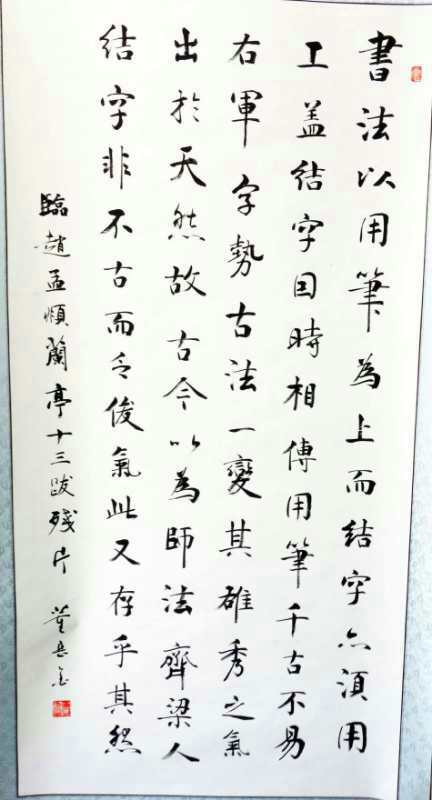 書法以用筆為上而結字亦須用
工蓋結字因時相傳用筆千古不易
右軍字勢古法一變其雄秀之氣
出於天然故古今以為師法齊梁人
結字非不古而乏俊氣此又存乎其然
臨趙孟順蘭亭十三跋殘片 董